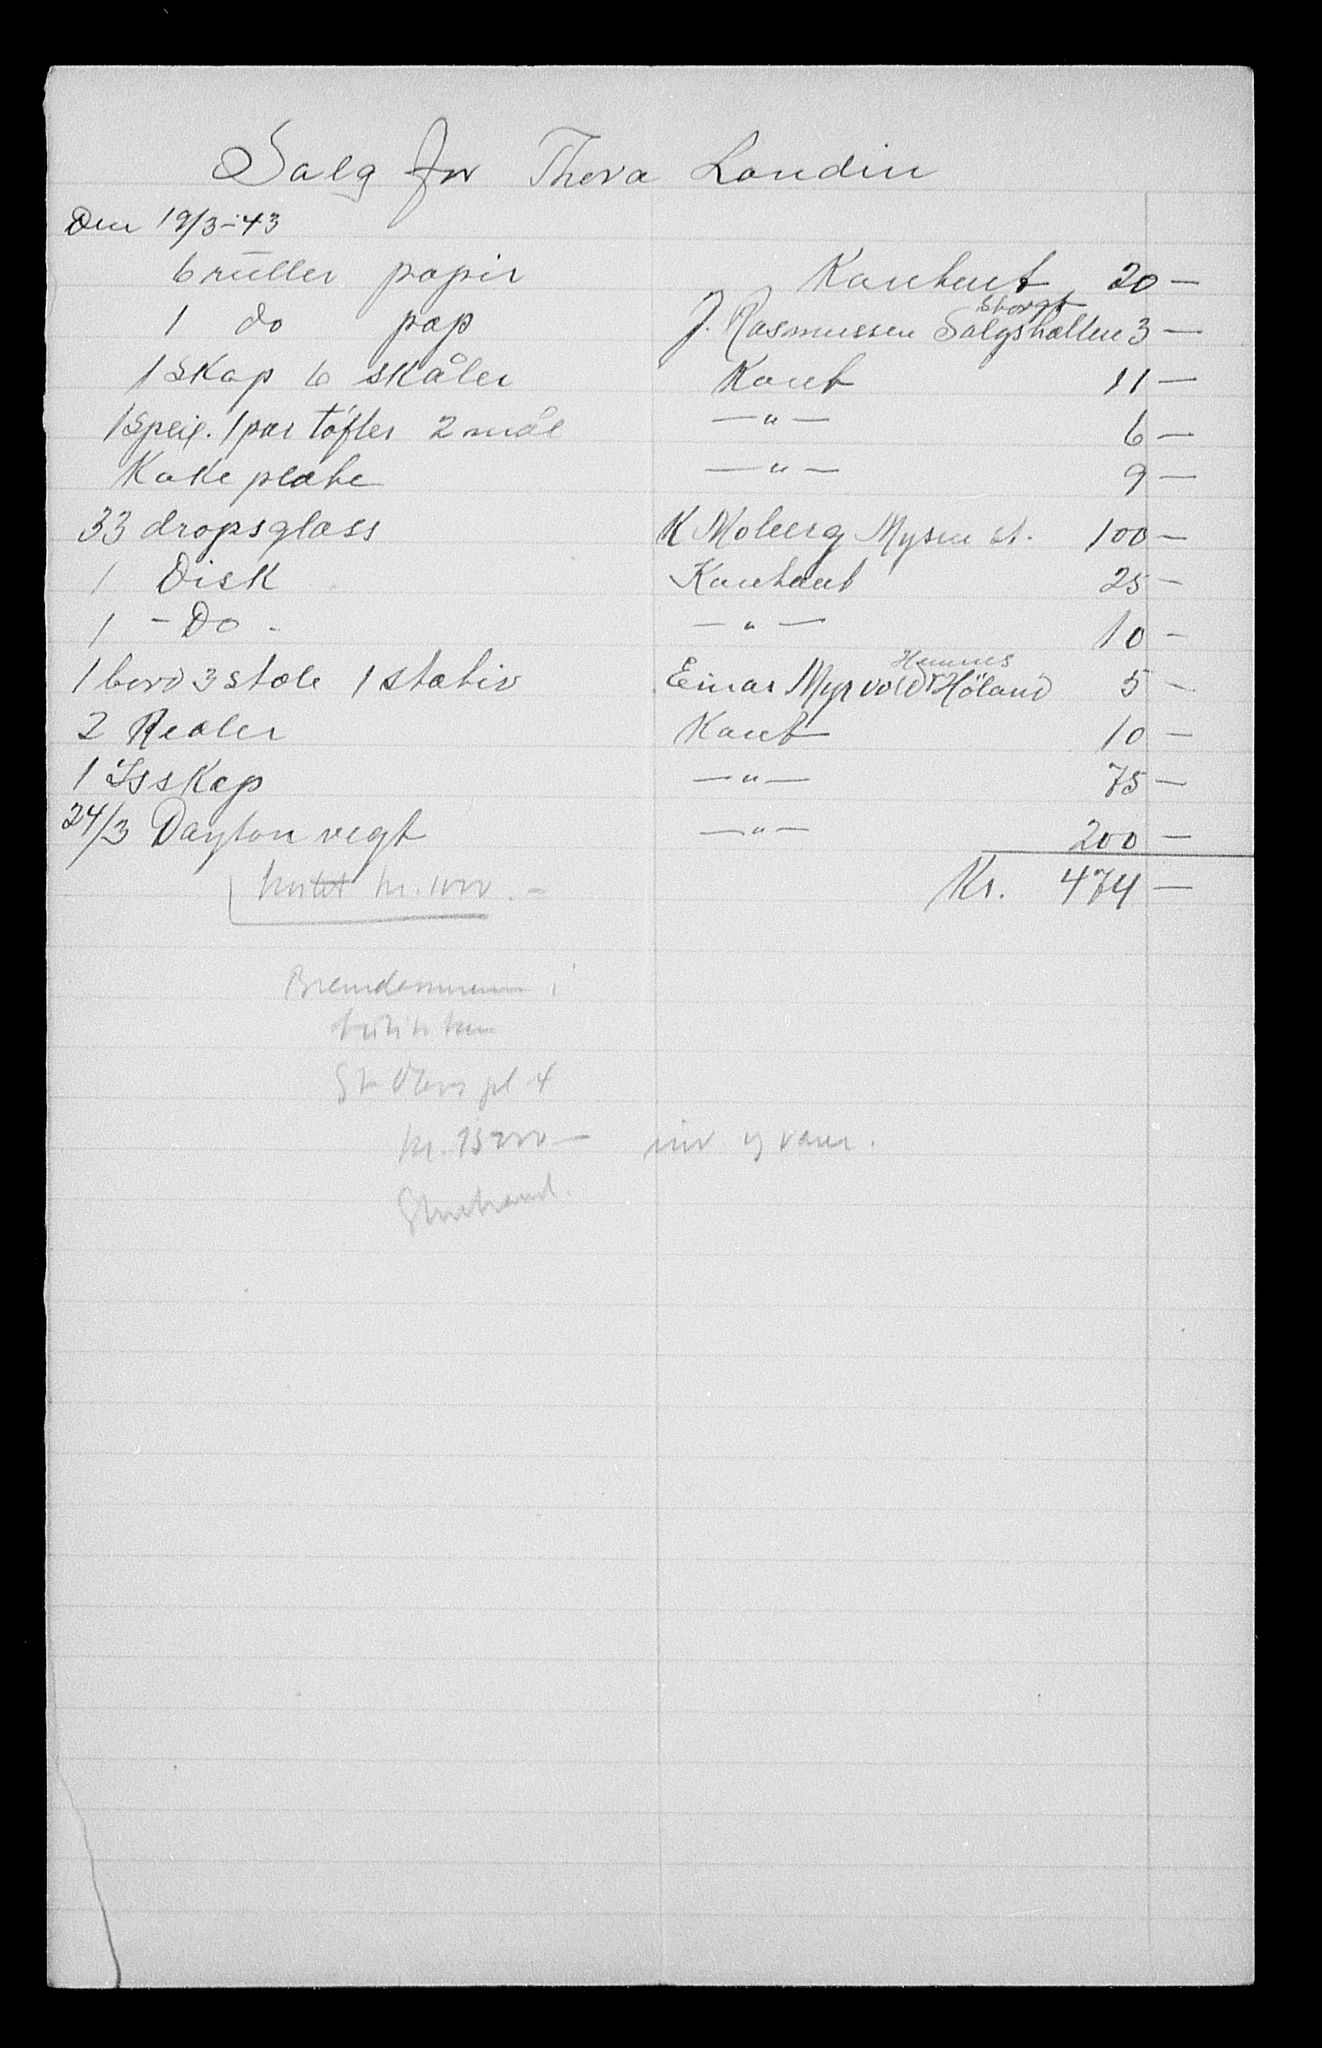 Salg for Thora Landin
Den 19/3-43
6 ruller papir Kontant 20 —
1 do pap J. Rasmussen Storgt Salgshallen 3 —
1 Skap 6 skåler Kont 11 —
1 Speil. 1 par tøfler 2 mål — " — 6 —
Kake plate — " — 9 —
33 dropsglass K Moberg Mysen st. 100 —
1 Disk Kontant 25 —
1 - Do - — " — 10 —
1 bord 3 stole 1 stativ Einar Myrvold Hemnes Höland 5 —
2 Reoler Kont 10 —
1 Isskap — " — 75 —
24/3 Dayton vegt — " — 200 —
Kr. 474 —
kostet kr. 1000. -
i
St. Olavs pl 4
kr. 15000 — inv og varer.